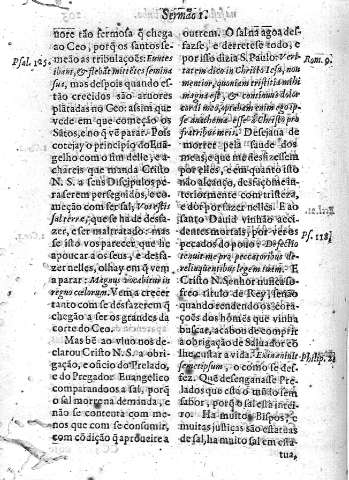 Sermão I.
nore tão fermosa q̃ chega
ao Ceo, porq̃ os santos se-
mẽão as tribulações: Euntes
Psal. 125.
ibant, & flebãt mittẽtes semina
sua, mas despois quando es-
tão crecidos são aruores
plãtadas no Ceo: assim que
vede em que começão os
Sãtos, e no q̃ vẽ parar. Pois
cotejay o principio do Euã-
gelho com o fim delle, e a-
chareis que manda Cristo
N. S. a seus Discipulos pe-
raserem perseguidos, e co-
meção com ser sal, Vos estis
sal terræ, que se ha de desfa-
zer, e ser maltratado: mas
se isto vos parecer que he
apoucar a os seus, e desfa-
zer nelles, olhay em q̃ vem
a parar: Magnus vocabitur in
regno cœlorum. Vem a crecer
tanto com se desfazerem q̃
chegão a ser os grandes da
corte do Ceo.
Mas bẽ ao viuo nos de-
clarou Cristo N. S. a obri-
gação, e o oficio do Prelado,
e do Pregador Euangelico
comparandoos a sal, porq̃
o sal morre na demanda, e
não se contenta com me-
nos que com se consumir,
com cõdição q̃ aproueite a
outrem. O sal na agoa des-
fazse, e derretese todo, e
por isso dizia S. Paulo: Veri-
tatem dico in Christo Iesu, non
Rom. 9.
mentior, quoniam tristitia mihi
magna est, & continuus dolor
cordi meo, optabam enim ego ip-
se anathema esse à Christo pro
fratribus meis. Desejaua de
morrer pela saude dos
meus, e que me desfizessem
por elles, e em quanto isto
não alcanço, desfaçome in-
teriormente com tristeza,
e dor por fazer nelles. E ao
santo Dauid vinhão acci-
dentes mortais, por ver os
pecados do pouo: Defectio
Ps. 118.
tenuit me pro peccatoribus de-
relinquentibus legem tuam. E
Cristo N. Senhor nunca so-
freo titulo de Rey, senão
quando rendendo os cora-
ções dos homẽs que vinha
buscar, acabou de comprir
a obrigação de Saluador cõ
lhe custar a vida. Exinaniuit
Philip. 2.
semetipsum, o como se des-
fez. Que desenganase Pre-
lados que estâ o mũdo sem
sabor, porq̃ o sal està intei-
ro. Ha muitos Bispos, e
muitas justiças são estatuas
de sal, ha muito sal em esta
tua,